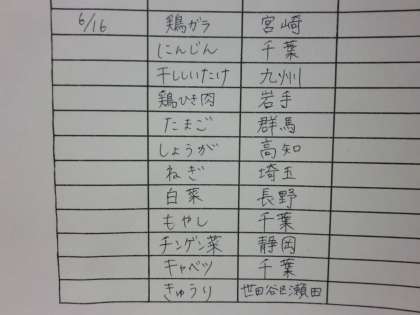 6/16 鶏ガラ 宮崎
にんじん 千葉
干ししいたけ 九州
鶏ひき肉 岩手
たまご 群馬
しょうが 高知
ねぎ 埼玉
白菜 長野
もやし 千葉
チンゲン菜 静岡
キャベツ 千葉
きゅうり 世田谷区瀬田